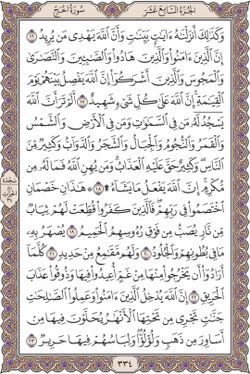 الجزء السابع عشر
سورة الحج
وَكَذَٰلِكَ أَنزَلْنَٰهُ ءَايَٰتٍۭ بَيِّنَٰتٍ وَأَنَّ ٱللَّهَ يَهْدِى مَن يُرِيدُ ١٦
إِنَّ ٱلَّذِينَ ءَامَنُوا۟ وَٱلَّذِينَ هَادُوا۟ وَٱلصَّٰبِـِٔينَ وَٱلنَّصَٰرَىٰ
وَٱلْمَجُوسَ وَٱلَّذِينَ أَشْرَكُوٓا۟ إِنَّ ٱللَّهَ يَفْصِلُ بَيْنَهُمْ يَوْمَ
ٱلْقِيَٰمَةِ إِنَّ ٱللَّهَ عَلَىٰ كُلِّ شَىْءٍ شَهِيدٌ ١٧ أَلَمْ تَرَ أَنَّ ٱللَّهَ
يَسْجُدُ لَهُۥ مَن فِى ٱلسَّمَٰوَٰتِ وَمَن فِى ٱلْأَرْضِ وَٱلشَّمْسُ
وَٱلْقَمَرُ وَٱلنُّجُومُ وَٱلْجِبَالُ وَٱلشَّجَرُ وَٱلدَّوَآبُّ وَكَثِيرٌ مِّنَ
ٱلنَّاسِ وَكَثِيرٌ حَقَّ عَلَيْهِ ٱلْعَذَابُ وَمَن يُهِنِ ٱللَّهُ فَمَا لَهُۥ مِن
مُّكْرِمٍ إِنَّ ٱللَّهَ يَفْعَلُ مَا يَشَآءُ ۩ ١٨ هَٰذَانِ خَصْمَانِ
ٱخْتَصَمُوا۟ فِى رَبِّهِمْ فَٱلَّذِينَ كَفَرُوا۟ قُطِّعَتْ لَهُمْ ثِيَابٌ
مِّن نَّارٍ يُصَبُّ مِن فَوْقِ رُءُوسِهِمُ ٱلْحَمِيمُ ١٩ يُصْهَرُ بِهِۦ
مَا فِى بُطُونِهِمْ وَٱلْجُلُودُ ٢٠ وَلَهُم مَّقَٰمِعُ مِنْ حَدِيدٍ ٢١ كُلَّمَآ
أَرَادُوٓا۟ أَن يَخْرُجُوا۟ مِنْهَا مِنْ غَمٍّ أُعِيدُوا۟ فِيهَا وَذُوقُوا۟ عَذَابَ
ٱلْحَرِيقِ ٢٢ إِنَّ ٱللَّهَ يُدْخِلُ ٱلَّذِينَ ءَامَنُوا۟ وَعَمِلُوا۟ ٱلصَّٰلِحَٰتِ
جَنَّٰتٍ تَجْرِى مِن تَحْتِهَا ٱلْأَنْهَٰرُ يُحَلَّوْنَ فِيهَا مِنْ
أَسَاوِرَ مِن ذَهَبٍ وَلُؤْلُؤًا وَلِبَاسُهُمْ فِيهَا حَرِيرٌ ٢٣
٣٣٤